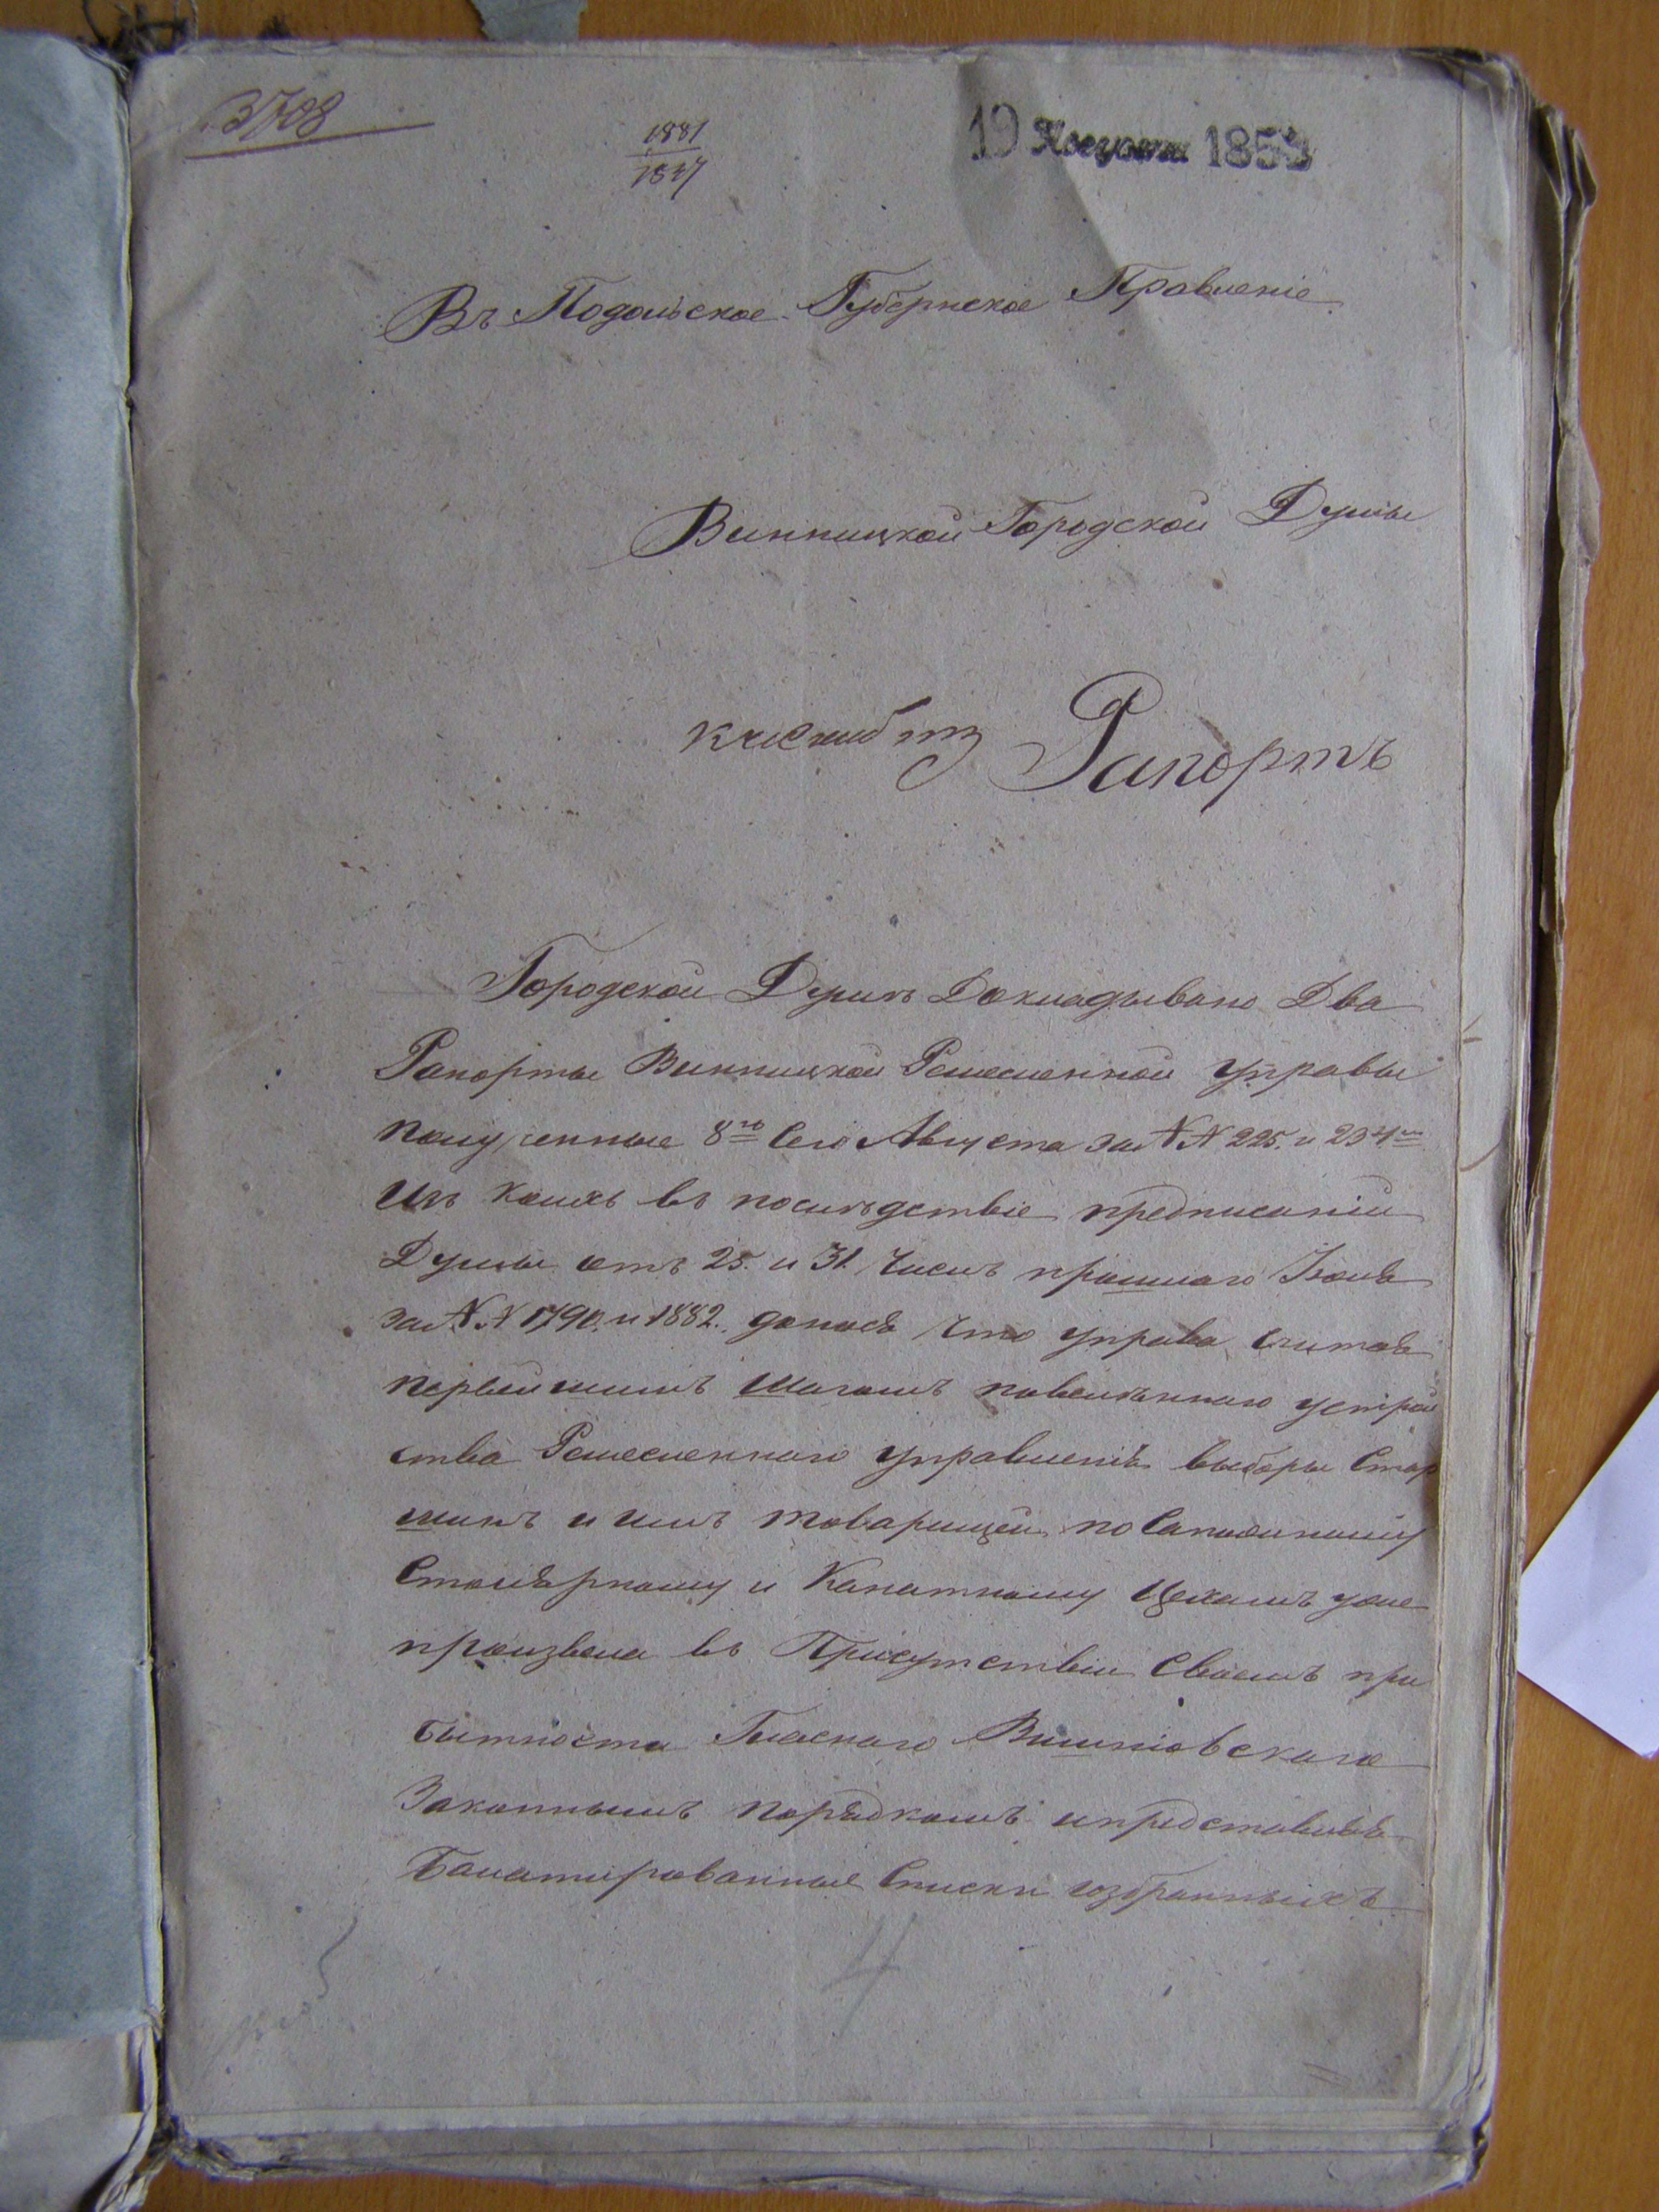 3708
1881
1837
19 Августа 1859
Въ Подольское Губернское Правленіе
Винницкой Городской Думы
Рапортъ
Городской Думѣ Докладывано Два
Рапорты Винницкой Ремесленной управы
полученные 8го Сего Августа за №№ 225. и 234м
Изъ коихъ въ послѣдствіе предписаній
Думы отъ 25. и 31. Числъ прошлаго Іюля
за №№ 1790. и 1882. донося что управа, считая
первѣйшимъ шагомъ повелѣннаго устрой
ства Ремесленнаго управленія выборы Стар
шинъ и имъ товарищей, по Сапожному
Столярному и Канатному Цехамъ уже
произвела въ Присутствіи Своемъ при
бытности Гласнаго Вишніовскаго
Законнымъ порядкомъ и представивъ
Балатированные Списки избранныхъ
4